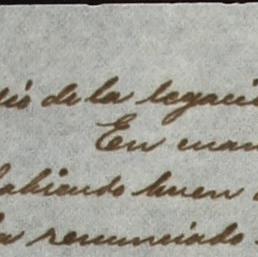 dió de la legació
En cuan
habiendo buen
ha renunciado